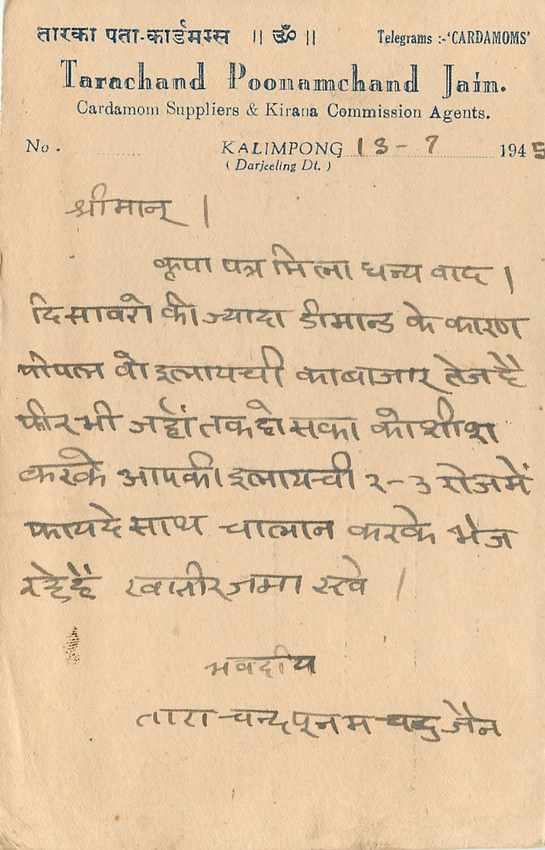 तारका पता-कार्डमम्स || ॐ || Telegrams :-'CARDAMOMS'
Tarachand Poonamchand Jain.
Cardamom Suppliers & Kirana Commission Agents.
No. KALIMPONG 13-7 1945
( Darjeeling Dt. )
श्रीमान् |
कृपा पत्र मिला धन्य वाद |
दिसावरो की ज्यादा डीमान्ड के कारण
पीपल वो इलायची का बाजार तेज है
फीर भी जहाँ तक हो सका कोशीश
करके आपकी इलायची २-३ रोज में
फायदे साथ चालान करके भेज
रहे हैं खातीर जमा रखे |
भवदीय
तारा चन्द पूनम चन्द जैन